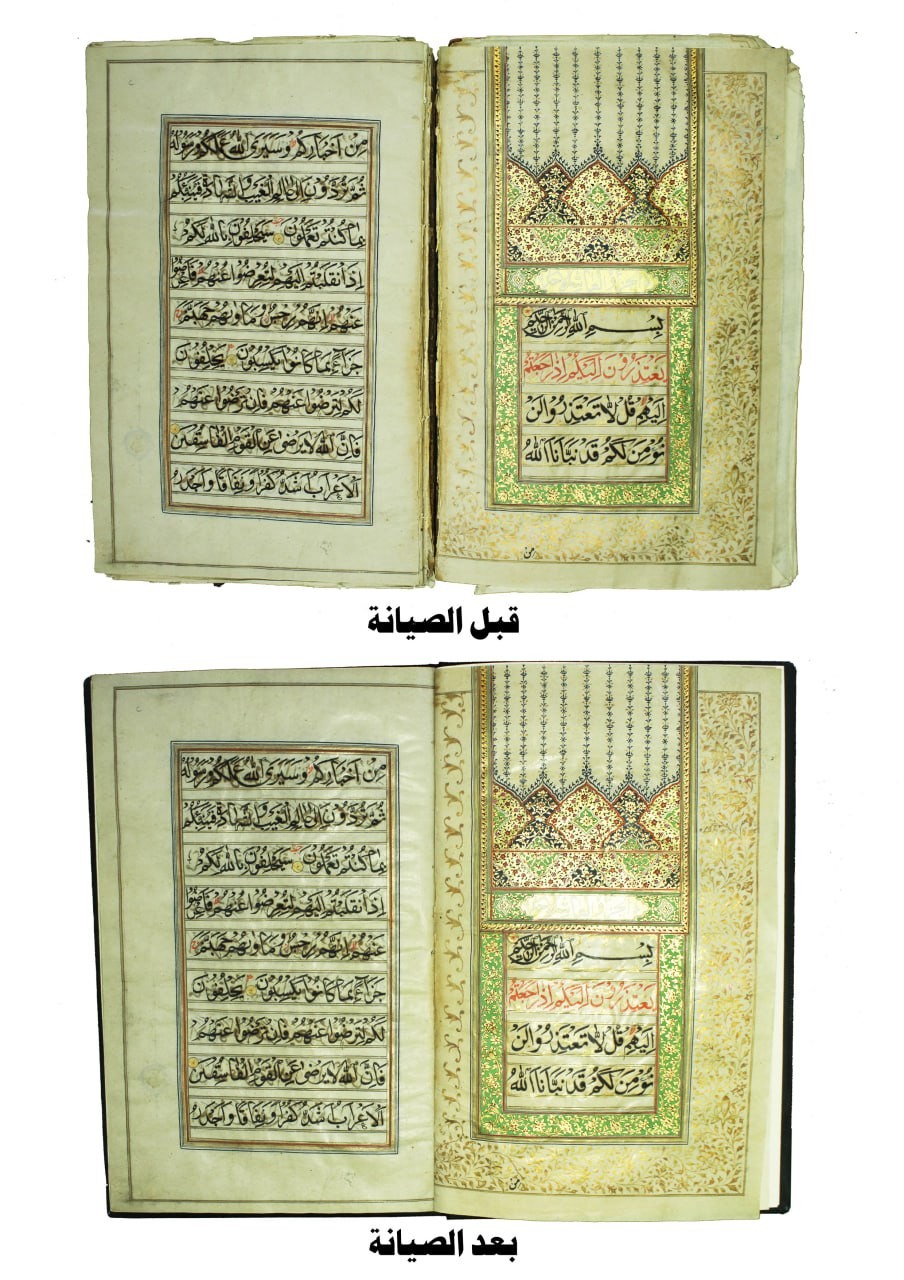 بِسْمِ اللهِ الرَّحْمٰنِ الرَّحِيْمِ
يَعْتَذِرُوْنَ اِلَيْكُمْ اِذَا رَجَعْتُمْ
اِلَيْهِمْ قُلْ لَا تَعْتَذِرُوْا لَنْ
نُؤْمِنَ لَكُمْ قَدْ نَبَّأَنَا اللهُ
من
مِنْ اَخْبَارِكُمْ وَسَيَرَى اللهُ عَمَلَكُمْ وَرَسُوْلُهُ
ثُمَّ تُرَدُّوْنَ اِلٰى عَالِمِ الْغَيْبِ وَالشَّهَادَةِ فَيُنَبِّئُكُمْ
بِمَا كُنْتُمْ تَعْمَلُوْنَ سَيَحْلِفُوْنَ بِاللهِ لَكُمْ
اِذَا انْقَلَبْتُمْ اِلَيْهِمْ لِتُعْرِضُوْا عَنْهُمْ فَاَعْرِضُوْا
عَنْهُمْ اِنَّهُمْ رِجْسٌ وَمَاْوٰيهُمْ جَهَنَّمُ
جَزَاءً بِمَا كَانُوْا يَكْسِبُوْنَ يَحْلِفُوْنَ
لَكُمْ لِتَرْضَوْا عَنْهُمْ فَاِنْ تَرْضَوْا عَنْهُمْ
فَاِنَّ اللهَ لَا يَرْضٰى عَنِ الْقَوْمِ الْفَاسِقِيْنَ
اَلْاَعْرَابُ اَشَدُّ كُفْرًا وَنِفَاقًا وَاَجْدَرُ
قبل الصيانة
بِسْمِ اللهِ الرَّحْمٰنِ الرَّحِيْمِ
يَعْتَذِرُوْنَ اِلَيْكُمْ اِذَا رَجَعْتُمْ
اِلَيْهِمْ قُلْ لَا تَعْتَذِرُوْا لَنْ
نُؤْمِنَ لَكُمْ قَدْ نَبَّأَنَا اللهُ
من
مِنْ اَخْبَارِكُمْ وَسَيَرَى اللهُ عَمَلَكُمْ وَرَسُوْلُهُ
ثُمَّ تُرَدُّوْنَ اِلٰى عَالِمِ الْغَيْبِ وَالشَّهَادَةِ فَيُنَبِّئُكُمْ
بِمَا كُنْتُمْ تَعْمَلُوْنَ سَيَحْلِفُوْنَ بِاللهِ لَكُمْ
اِذَا انْقَلَبْتُمْ اِلَيْهِمْ لِتُعْرِضُوْا عَنْهُمْ فَاَعْرِضُوْا
عَنْهُمْ اِنَّهُمْ رِجْسٌ وَمَاْوٰيهُمْ جَهَنَّمُ
جَزَاءً بِمَا كَانُوْا يَكْسِبُوْنَ يَحْلِفُوْنَ
لَكُمْ لِتَرْضَوْا عَنْهُمْ فَاِنْ تَرْضَوْا عَنْهُمْ
فَاِنَّ اللهَ لَا يَرْضٰى عَنِ الْقَوْمِ الْفَاسِقِيْنَ
اَلْاَعْرَابُ اَشَدُّ كُفْرًا وَنِفَاقًا وَاَجْدَرُ
بعد الصيانة